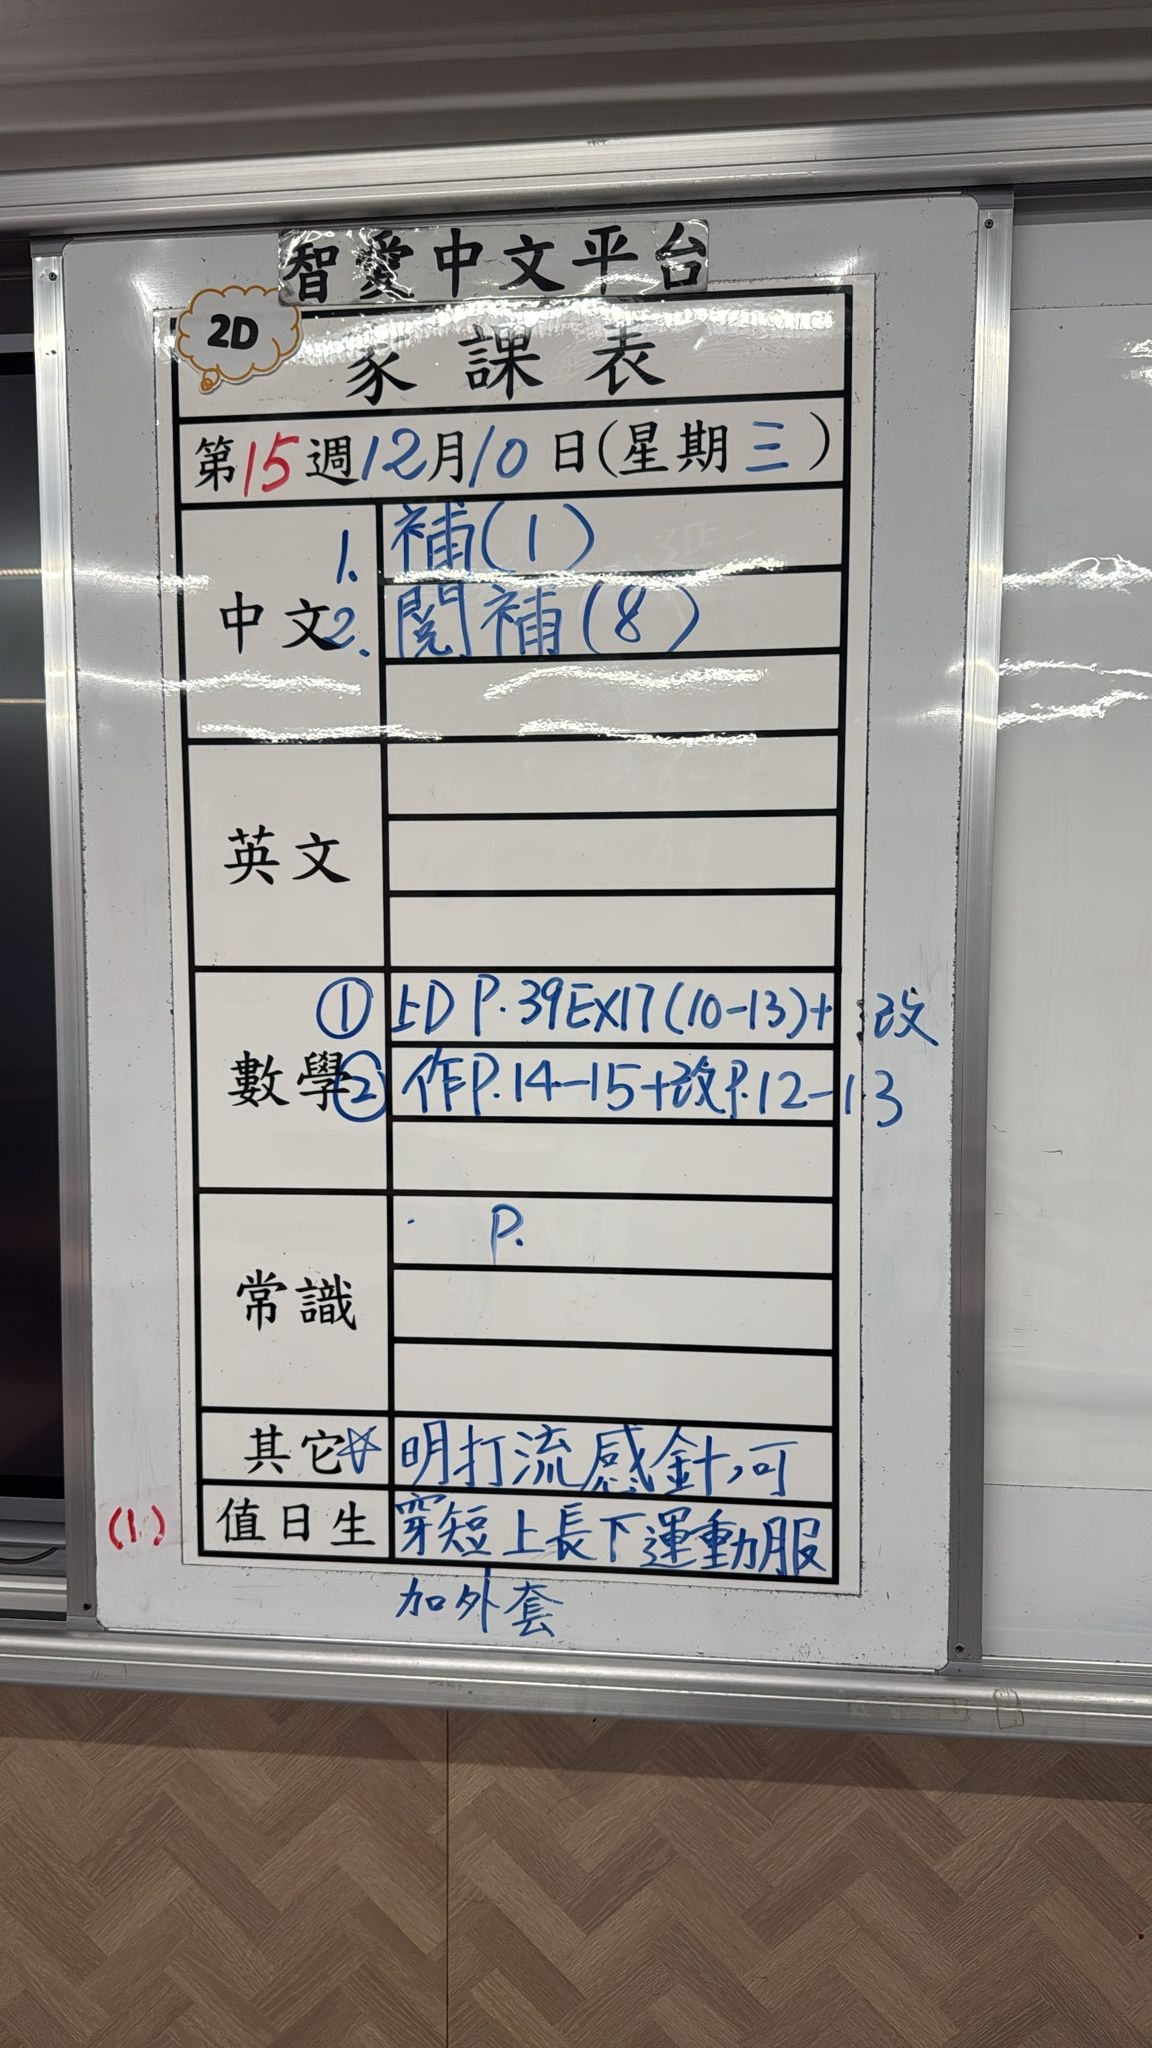 智愛中文平台
2D
家課表
第15週12月10日(星期三)
中文
1. 補(1)
2. 閱補(8)
英文
數學
① 上D P.39EX17(10-13)+改
② 作P.14-15+改P.12-13
常識
P.
其它 ☆ 明打流感針,可
(1) 值日生 穿短上長下運動服
加外套